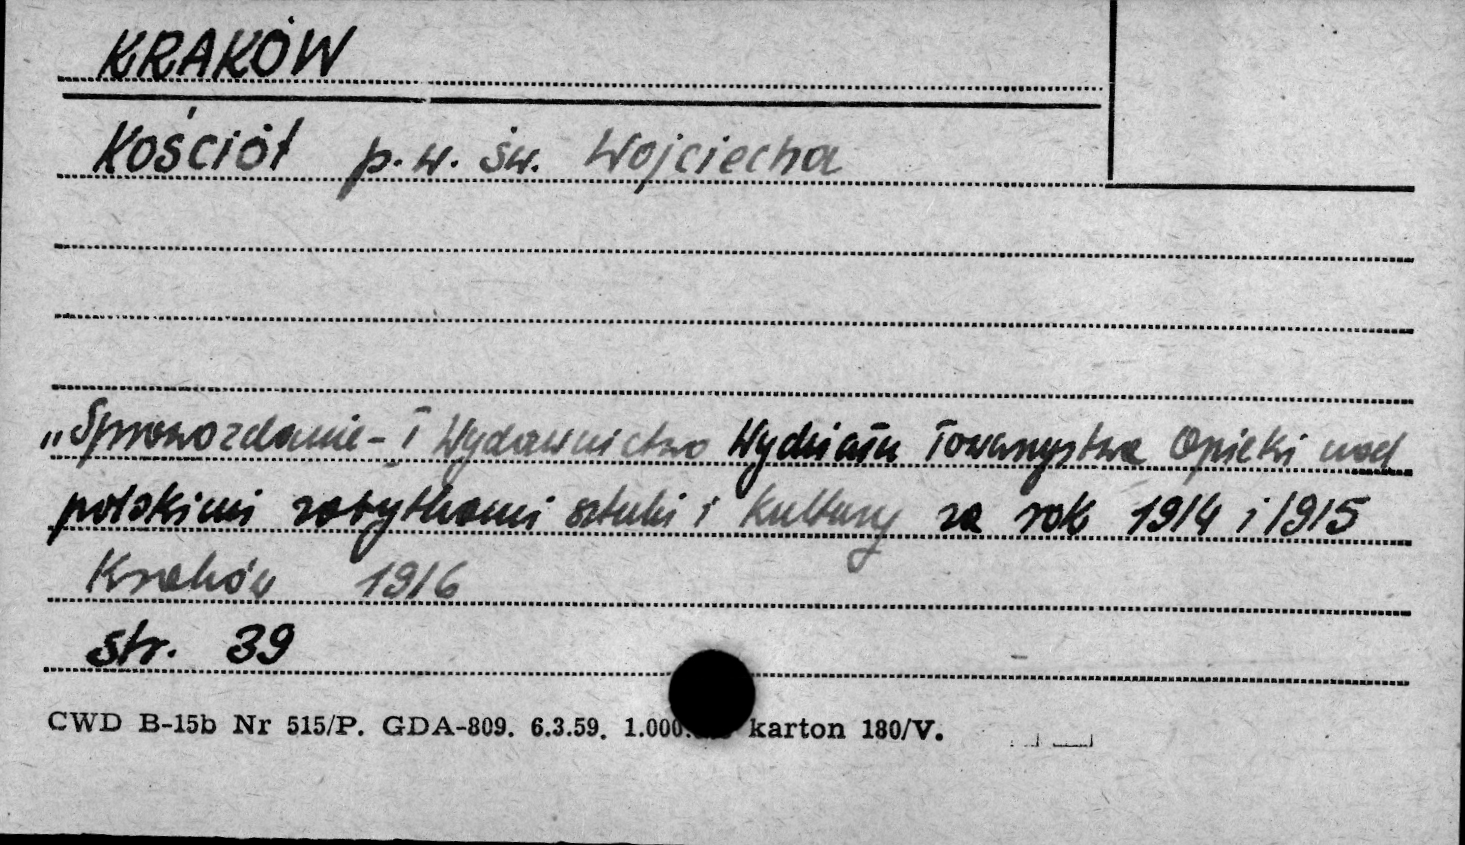 KRAKÓW
Kościół p.w. św. Wojciecha
„Sprawozdanie - I Wydawnictwo Wydziału Towarzystwa Opieki nad
polskimi zabytkami sztuki i Kultury za rok 1914 i 1915
Kraków 1916
str. 39
CWD B-15b Nr 515/P. GDA-809. 6.3.59. 1.000. karton 180/V.